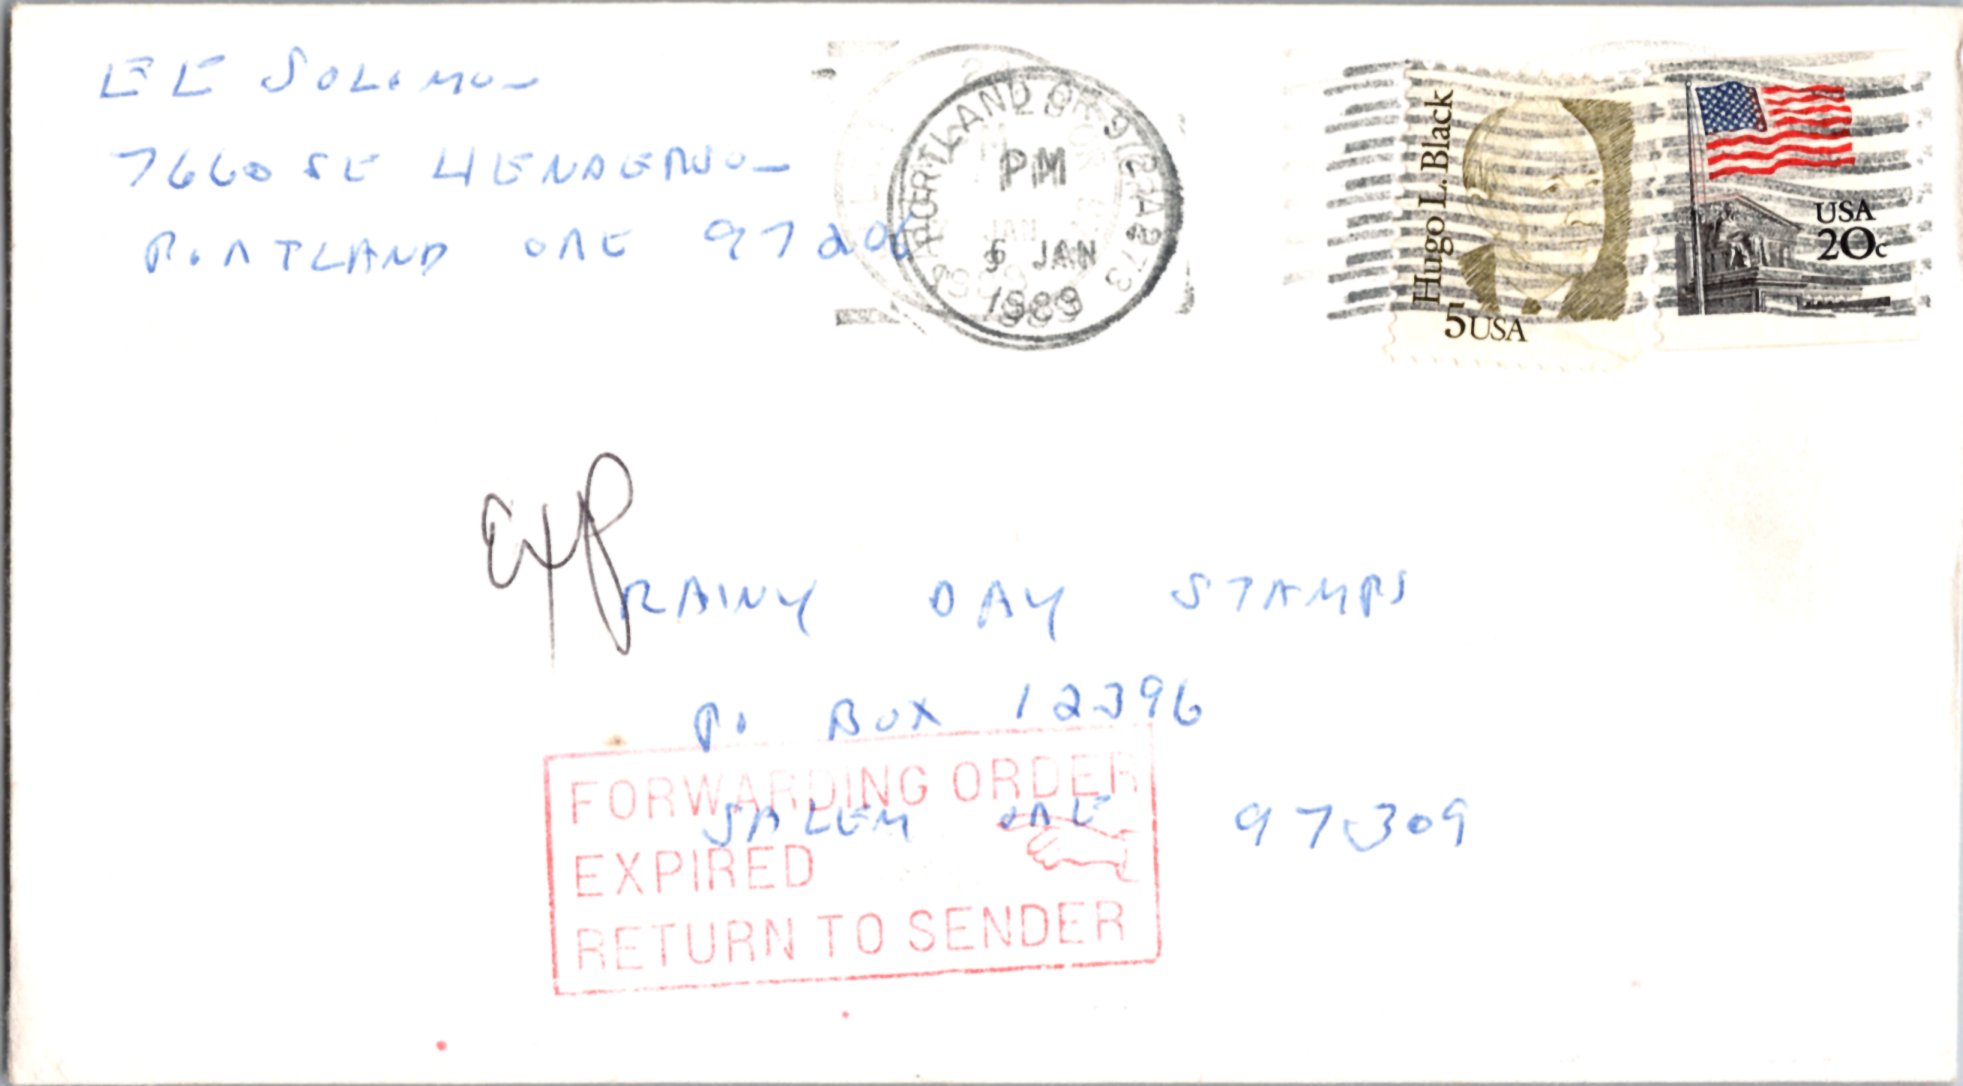 EE SOLOMON
7660 SE HENDERSON
PORTLAND ORE 97206
PORTLAND OR 972
PM
5 JAN
1989
Hugo L. Black
5 USA
USA
20c
Exp
RAINY DAY STAMPS
P. BOX 12396
SALEM ORE 97309
FORWARDING ORDER
EXPIRED
RETURN TO SENDER